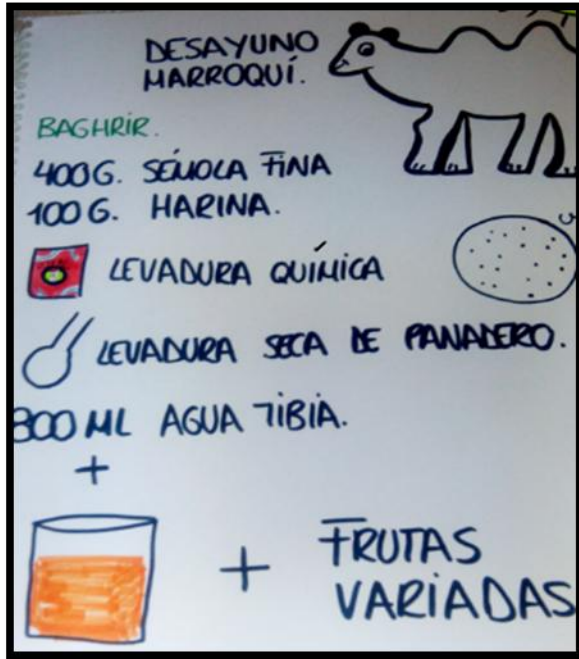 DESAYUNO
MARROQUÍ.
BAGHRIR.
400G. SÉMOLA FINA
100G. HARINA.
LEVADURA QUÍMICA
LEVADURA SECA DE PANADERO.
800 ML AGUA TIBIA.
+
+ FRUTAS
VARIADAS